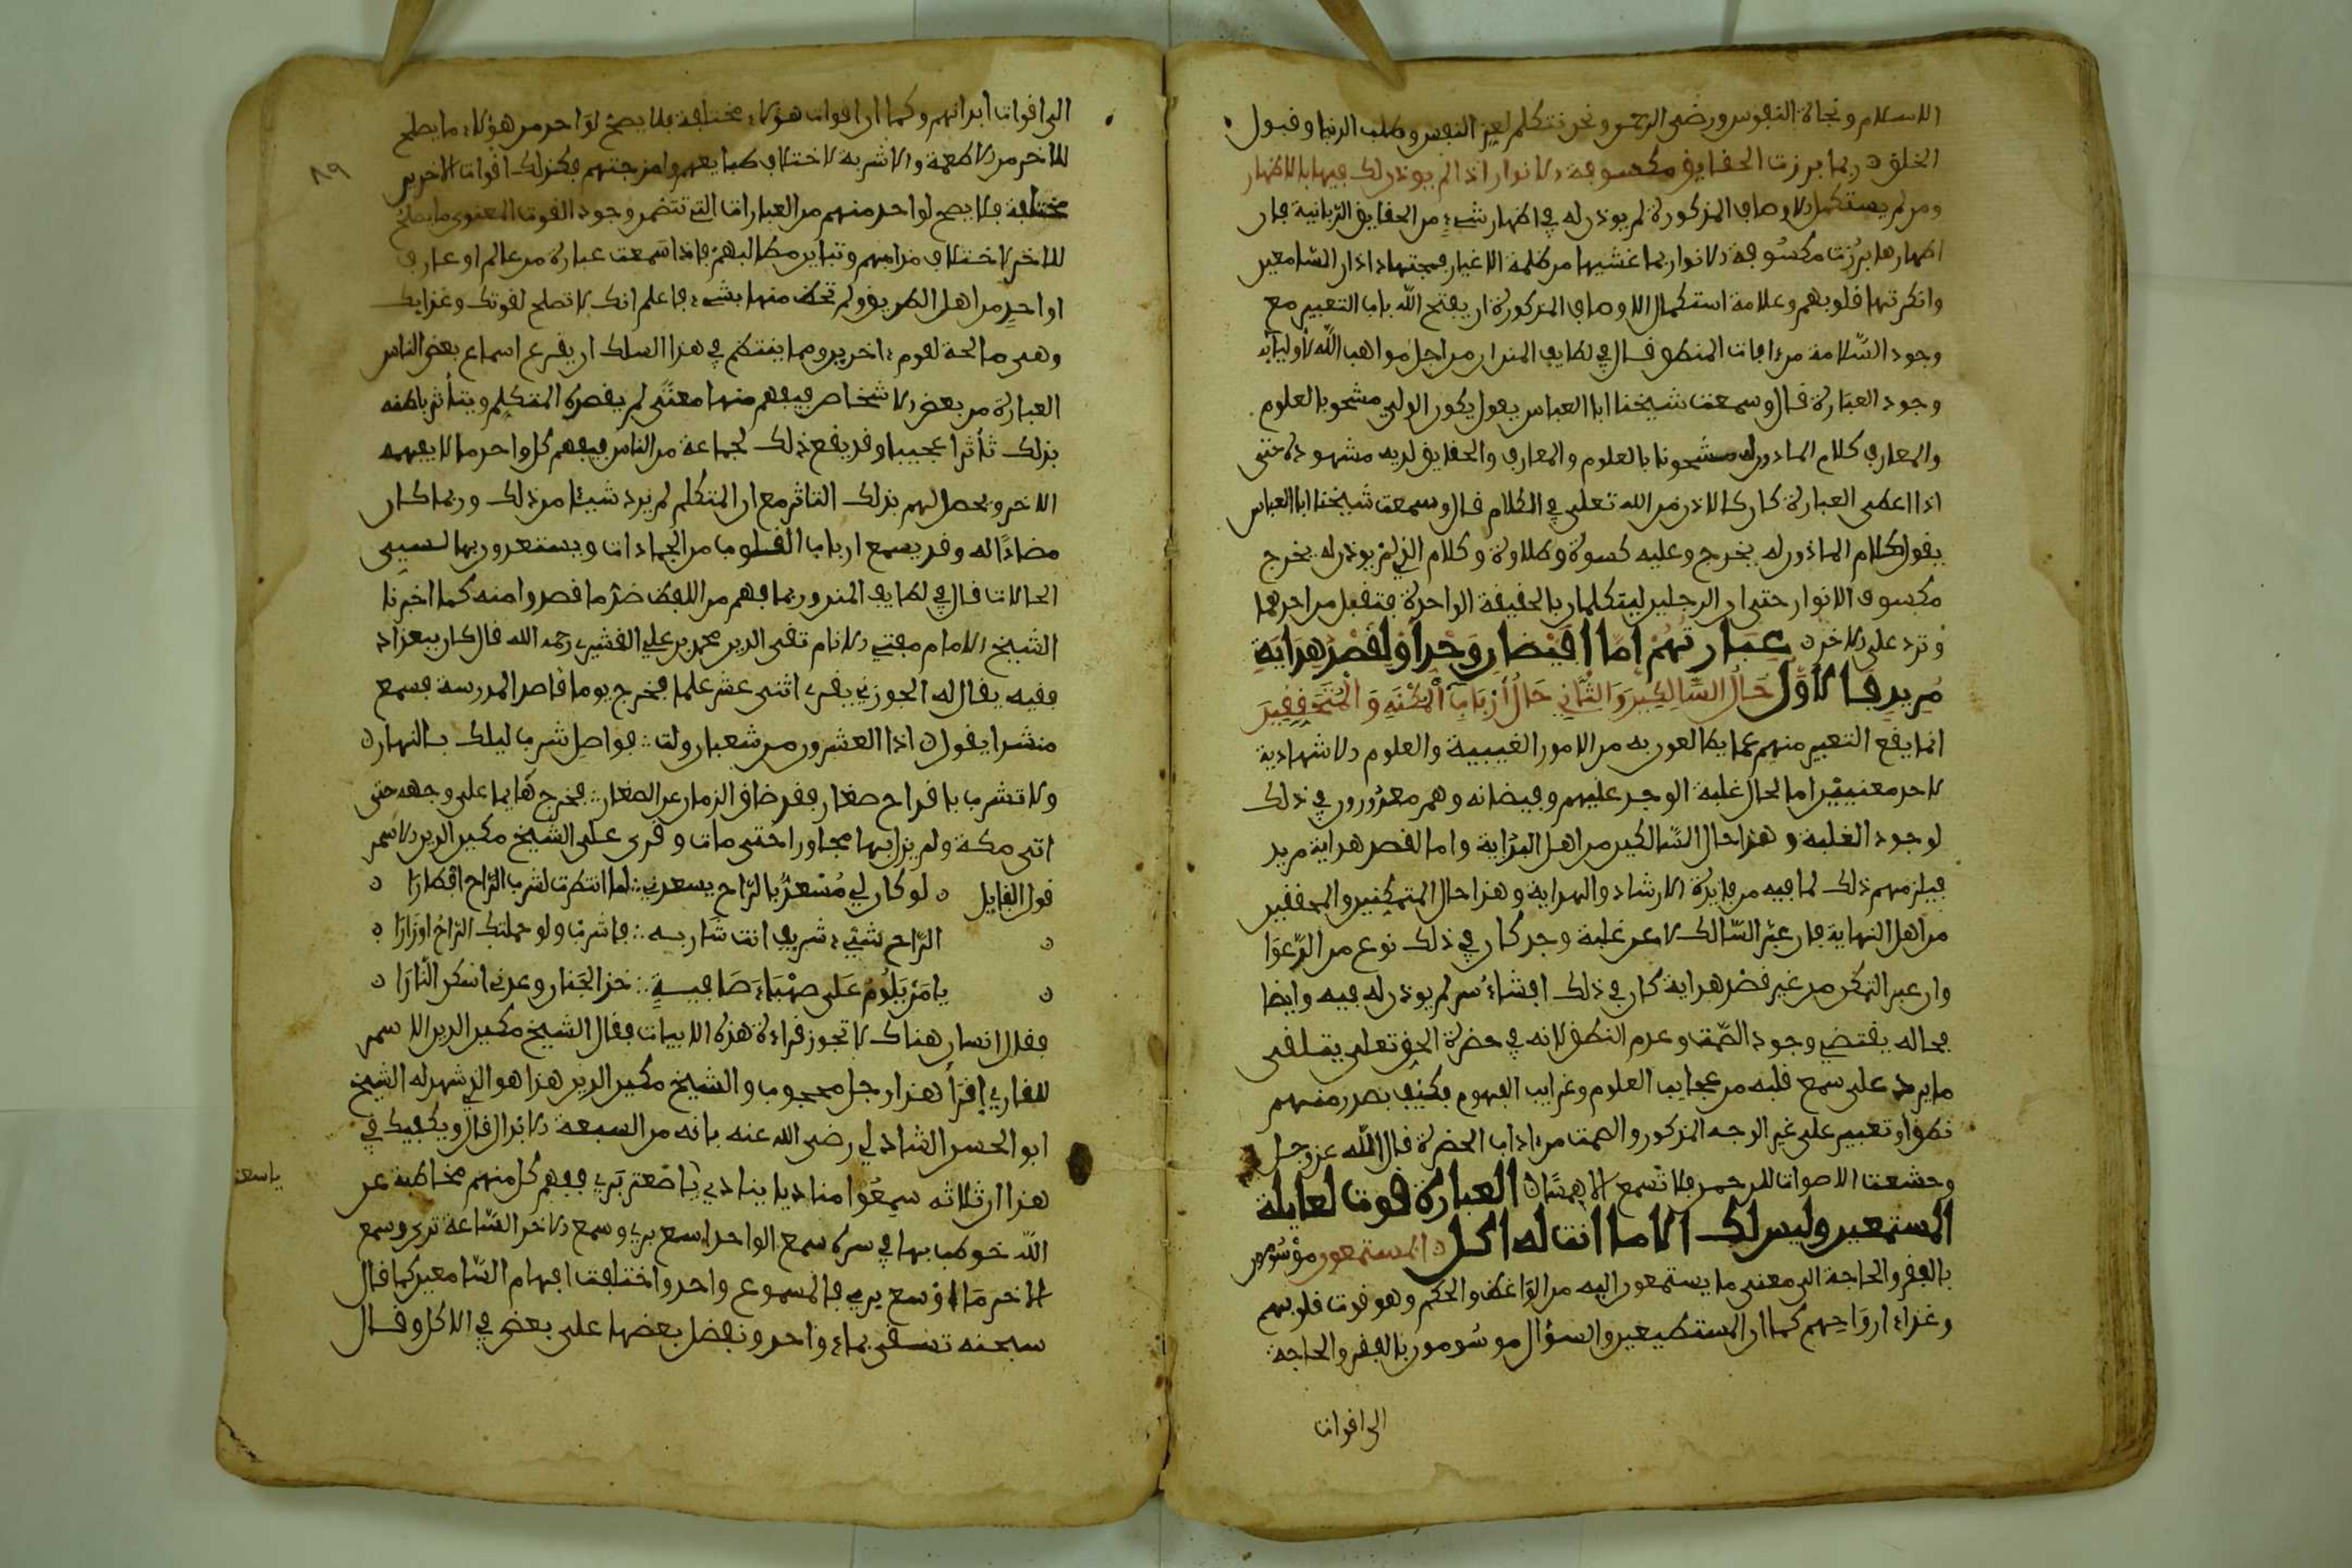 الاسلام ونجاة النفوس ورضى الرحمن ونحن نتكلم لعز النفس وطلب الدنيا وقبول
الخلق ربما برزت الحقايق مكسوفة الانوار اذا لم يوذن لك فيها بالاظهار
ومن لم يستكمل الاوصاف المذكورة لم يوذن له في اظهار شيء من الحقايق الربانية فان
اظهرها برزت مكسوفة الانوار بما غشيها من ظلمة الاغيار فمجتها اذان السامعين
وانكرتها قلوبهم وعلامة استكمال الاوصاف المذكورة ان يفتح الله باب التعبير مع
وجود السلامة من افات المنطق قال في لطايف المنن ان من اجل مواهب الله لأوليايه
وجود العبارة قال وسمعت شيخنا ابا العباس يقول يكون الولي مشحونا بالعلوم
والمعارف كلام الماذون له مشحونا بالعلوم والمعارف والحقايق لديه مشهودة حتى
اذا اعطى العبارة كان كالاذن من الله تعلى في الكلام قال وسمعت شيخنا ابا العباس
يقول كلام الماذون له يخرج وعليه كسوة وطلاوة وكلام الذي لم يوذن له يخرج
مكسوف الانوار حتى ان الرجلين ليتكلمان بالحقيقة الواحدة فتقبل من احدهما
وترد على الاخر عبارتهم اما افيضان وجد او لقصد هداية
مريد فالاول حال السالكين والثاني حال ارباب المكنة والمتحققين
انما يقع التعبير منهم عما يطالعون به من الامور الغيبية والعلوم الاشهادية
لاحد معنيين اما لحال غلبة الوجد عليهم وفيضانه وهم معذورون في ذلك
لوجود الغلبة وهذا حال السالكين من اهل البداية واما لقصد هداية مريد
فيلزمهم ذلك لما فيه من فايدة الارشاد والهداية وهذا حال المتمكنين والمحققين
من اهل النهاية فان عبر السالك لا عن غلبة وجد كان في ذلك نوع من الدعوا
وان عبر المتمكن من غير قصد هداية كان في ذلك افشاء سر لم يوذن له فيه وايضا
فحاله يقتضي وجود الصمت وعدم النطق لانه في حضرة الحق تعلى يتلقى
ما يرد على سمع قلبه من عجايب العلوم وغرايب الفهوم فكيف يصدر منهم
نطق او تعبير على غير الوجه المذكور والصمت من اداب الحضرة قال الله عز وجل
وخشعت الاصوات للرحمن فلا تسمع الا همسا العبارة قوت لعايلة
المستمعين وليس لك الا ما انت له اكل المستمعون موسومون
بالفقر والحاجة الى معنى ما يستمعون اليه من المواعظ والحكم وهو قوت قلوبهم
وغذاء ارواحهم كما ان المستطعمين والسؤال موسومون بالفقر والحاجة
الى اقوات
٨٩
الى اقوات ابدانهم وكما ان اقوات هؤلاء مختلفة فلا يصح لواحد من هؤلاء ما يصلح
للاخر من الاطعمة والاشربة لاختلاف طبايعهم وامزجتهم فكذلك اقوات الاخرين
مختلفة فلا يصح لواحد منهم من العبارات التي تتضمن وجود القوت المعنوي ما يصلح
للاخر لاختلاف مذاهبهم وتباين مطالبهم فاذا سمعت عبارة من عالم او عارف
او احد من اهل الطريق ولم تحظ منها بشيء فاعلم انك لا تصلح لقوتك وغذايك
وهي صالحة لقوم اخرين ومما ينتظم في هذا السلك ان يقرع اسماع بعض الناس
العبارة من بعض الاشخاص فيفهم منها معنى لم يقصده المتكلم ويتأثر باطنه
بذلك تأثرا عجيبا وقد يقع ذلك لجماعة من الناس فيفهم كل واحد ما لا يفهمه
الاخر ويحصل لهم بذلك التاثر مع ان المتكلم لم يرد شيئا من ذلك وربما كان
مضادا له وقد يسمع ارباب القلوب من الجمادات ويستعدون بها لسني
الحالات قال في لطايف المنن وربما فهم من اللفظ ضد ما قصد وامنه كما اخبرنا
الشيخ الامام مفتي الانام تقي الدين محمد بن علي القشيري رحمه الله قال كان ببغداد
فقيه يقال له الجوزي يقرء اثني عشر علما فخرج يوما قاصد المدرسة فسمع
منشدا يقول اذا العشرون من شعبان ولت فواصل شرب ليلك بالنهار
ولا تشرب باقداح صغار فقد ضاق الزمان عن الصغار فخرج هايما على وجهه حتى
اتى مكة ولم يزل بها مجاورا حتى مات وقرى على الشيخ مكين الدين الاسمر
قول القايل لو كان لي مسعد بالراح يسعدني لما انتظرت لشرب الراح افطارا
الراح شيء شريف انت شاربه فاشرب ولو حملتك الراح اوزارا
يا من يلوم على صهباء صافية خذ الجنان ودعني اسكن النارا
فقال انسان هناك لا تجوز قراءة هذه الابيات فقال الشيخ مكين الدين الاسمر
للقاري إقرأ هذا رجل محجوب والشيخ مكين الدين هذا هو الذي شهد له الشيخ
ابو الحسن الشاذلي رضى الله عنه بانه من السبعة الابدال قال ويكفيك في
هذا ان ثلاثة سمعوا مناديا ينادي يا صعتر بري ففهم كل منهم مخاطبة عن
يا سعتر
الله خوطب بها في سره سمع الواحد اسع بري وسمع الاخر الساعة ترى وسمع
الاخر ما اوسع بري فالمسموع واحد واختلفت افهام السامعين كما قال
سبحنه تسقى بماء واحد ونفضل بعضها على بعض في الاكل وقال